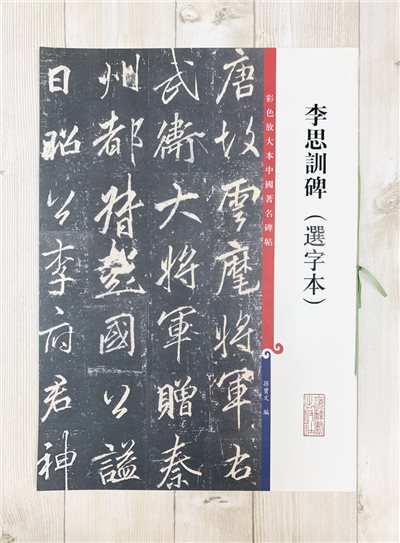 李思訓碑（選字本）
彩色放大本中國著名碑帖
孫寶文 編
唐故雲麾將軍右
武衛大將軍贈秦
州都督彭國公謚
日昭公李府君神